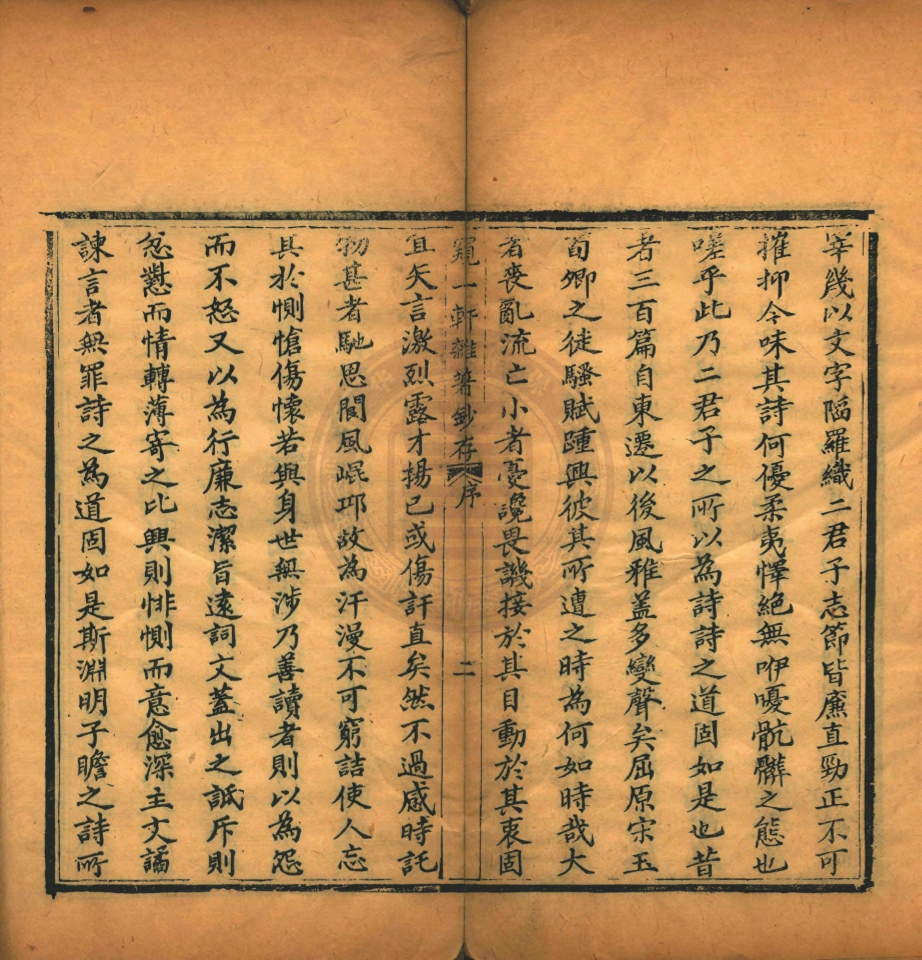 宰幾以文字陷羅織二君子志節皆廉直勁正不可
摧抑今味其詩何優柔夷懌絕無咿嚘骯髒之態也
嗟乎此乃二君子之所以為詩詩之道固如是也昔
者三百篇自東遷以後風雅蓋多變聲矣屈原宋玉
荀卿之徒騷賦踵興彼其所遭之時為何如時哉大
者喪亂流亡小者憂讒畏譏接於其目動於其衷固
窺一軒雜著鈔存 序 二
宜矢言激烈露才揚己或傷訐直矣然不過感時託
物甚者馳思閬風崐邱故為汗漫不可窮詰使人忘
其於惻愴傷懷若與身世無涉乃善讀者則以為怨
而不怒又以為行廉志潔旨遠詞文蓋出之詆斥則
忿懟而情轉薄寄之比興則悱惻而意愈深主文譎
諫言者無罪詩之為道固如是斯淵明子瞻之詩所